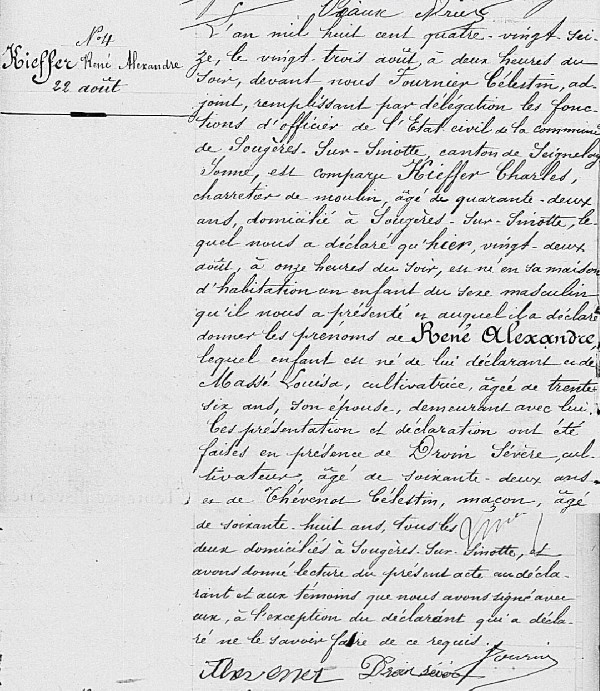 Nº 4
Kieffer René Alexandre
22 août
L'an mil huit cent quatre-vingt-sei-
ze, le vingt trois août, à deux heures du
soir, devant nous Fournier Célestin, ad-
joint, remplissant par délégation les fonc-
tions d'officier de l'Etat civil de la commune
de Sougères-Sur-Sinotte, canton de Seignelay
Yonne, est comparu Kieffer Charles,
charretier de moulin, âgé de quarante-deux
ans, domicilié à Sougères-Sur-Sinotte, le-
quel nous a déclaré qu'hier, vingt-deux
août, à onze heures du soir, est né en sa maison
d'habitation un enfant du sexe masculin
qu'il nous a présenté et auquel il a déclaré
donner les prénoms de René Alexandre,
lequel enfant est né de lui déclarant et de
Massé Louisa, cultivatrice, âgée de trente
six ans, son épouse, demeurant avec lui.
Ces présentation et déclaration ont été
faites en présence de Droin Sévère, cul-
tivateur, âgé de soixante-deux ans
et de Thévenot Célestin, maçon, âgé
de soixante-huit ans, tous les
deux domiciliés à Sougères-Sur-Sinotte, et
avons donné lecture du présent acte au décla-
rant et aux témoins que nous avons signé avec
eux, à l'exception du déclarant qui a décla-
ré ne le savoir faire de ce requis.
Thevenot Droin Sévère